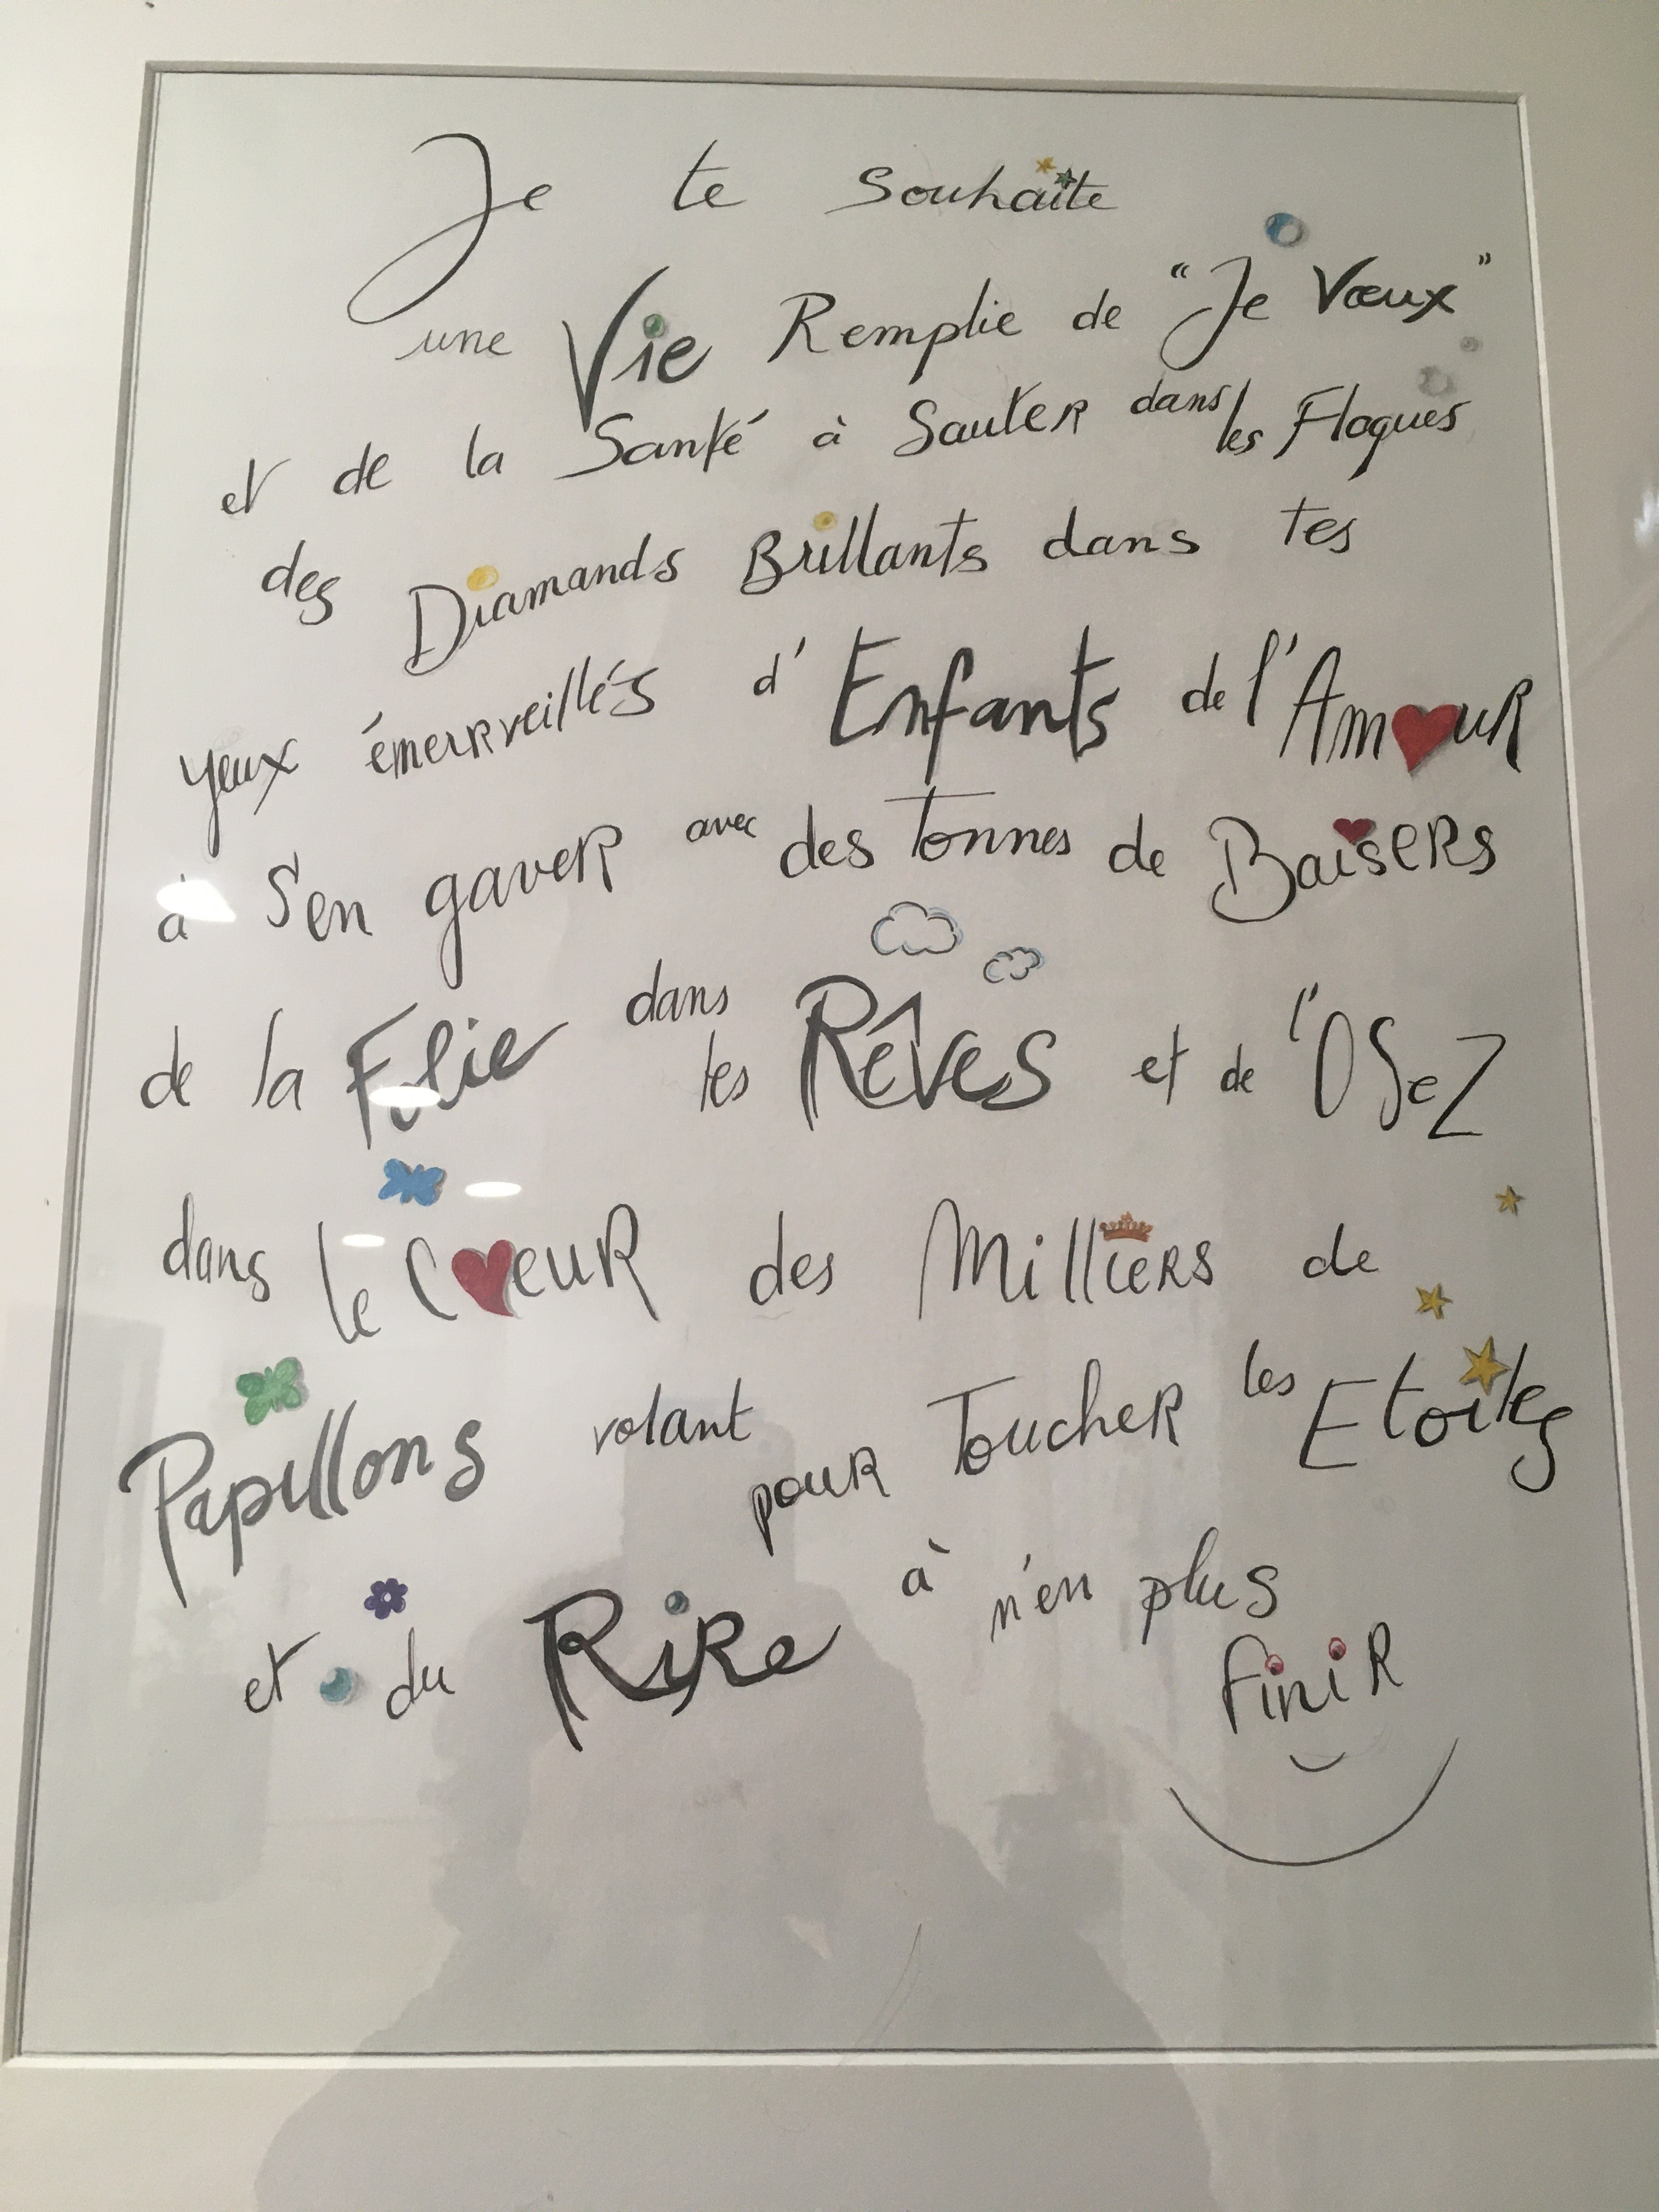 Je te souhaite
une Vie Remplie de "Je Vœux"
et de la Santé à Sauter dans les Flaques
des Diamands Brillants dans tes
yeux émerrveillés d'Enfants de l'Amour
à S'en gaver avec des Tonnes de Baisers
de la Folie dans les Rêves et de l'OSeZ
dans le CœuR des Milliers de
Papillons volant pour Toucher les Etoiles
et du Rire à n'en plus
finir